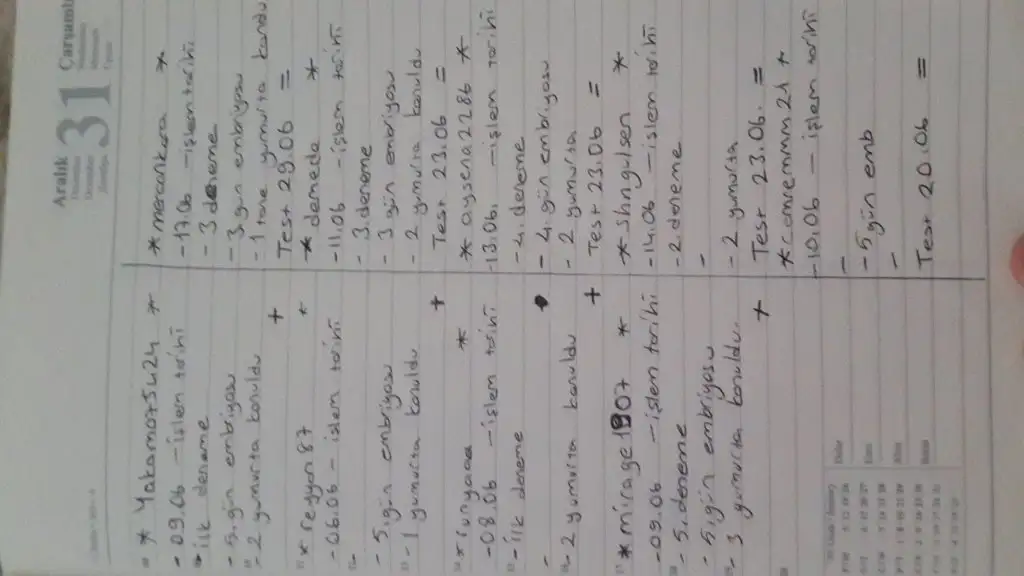 Aralık 31 Çarşamba
* Yakamoz5424 *
- 09.06 - işlem tarihi
- ilk deneme
- 5.gün embriyosu
- 2 yumurta konuldu
+
* reyyan87 *
- 06.06 - islem tarihi
- 5.gün embriyosu
- 1 yumurta konuldu
+
*
- 08.06 - islem tarihi
- ilk deneme
-
- 2 yumurta konuldu
+
* mirage1907 *
- 09.06 - işlem tarihi
- 5.deneme
- 5.gün embriyosu
- 3 yumurta konuldu.
+
* mercankara *
- 17.06 - işlem tarihi
- 3 deneme
- 3.gun embriyosu
- 1 tane yumurta kondu
Test 29.06 =
* demeda *
- 11.06 - işlem tarihi
- 3.deneme
- 3 gün embriyosu
- 2 yumurta konuldu
Test 23.06 =
* aysena2286 *
- 13.06. - işlem tarihi
- 4. deneme
- 4.gün embriyosu
- 2 yumurta
Test 23.06 =
* shngulsen *
- 14.06 - işlem tarihi
- 2.deneme
-
- 2 yumurta
Test 23.06. =
- 10.06 - işlem tarihi
-
- 5 gün emb
-
Test 20.06 =